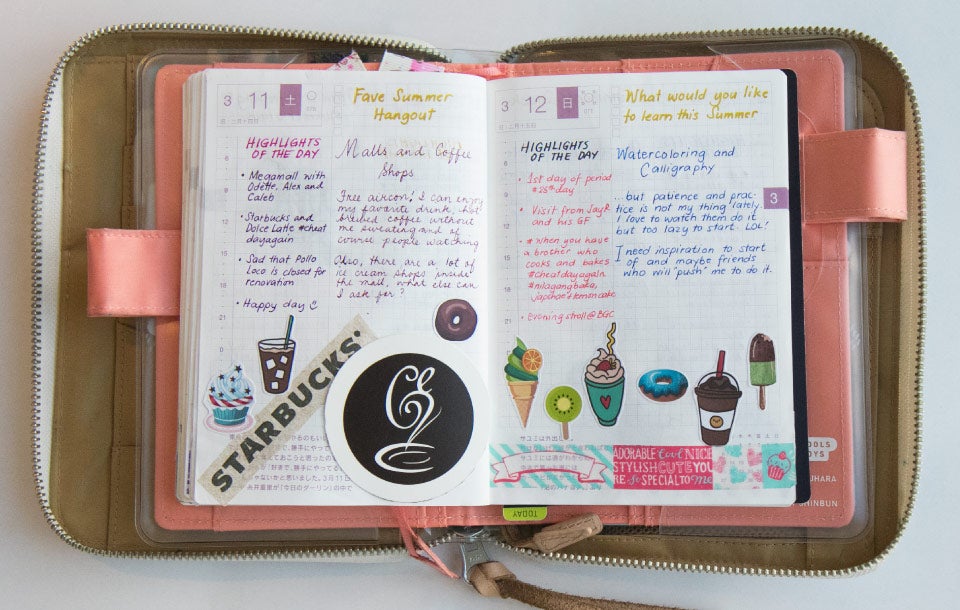 3 11 土
Fave Summer
Hangout
HIGHLIGHTS
OF THE DAY
• Megamall with
Odette, Alex and
Caleb
• Starbucks and
Dolce Latte #cheat
dayagain
• Sad that Pollo
Loco is closed for
renovation
• Happy day
Malls and Coffee
Shops
Free aircon! I can enjoy
my favorite drink, hot
brewed coffee without
me sweating and of
course people watching
Also, there are a lot of
ice cream shops inside
the mall, what else can
I ask for?
STARBUCKS'
3 12 日
What would you like
to learn this Summer
HIGHLIGHTS
OF THE DAY
• 1st day of period
#25thday
• Visit from JayR
and his GF
• # When you have
a brother who
cooks and bakes
#Cheatdayagain
#nilagangbaka,
Japanese lemoncake
• Evening stroll @ BGC
Watercoloring and
Calligraphy
but patience and prac-
tice is not my thing lately.
I love to watch them do it
but too lazy to start. LOL!
I need inspiration to start
of and maybe friends
who will 'push' me to do it.
3
ADORABLE NICE
STYLISH CUTE YOU
ARE so SPECIAL TO me
TODAY